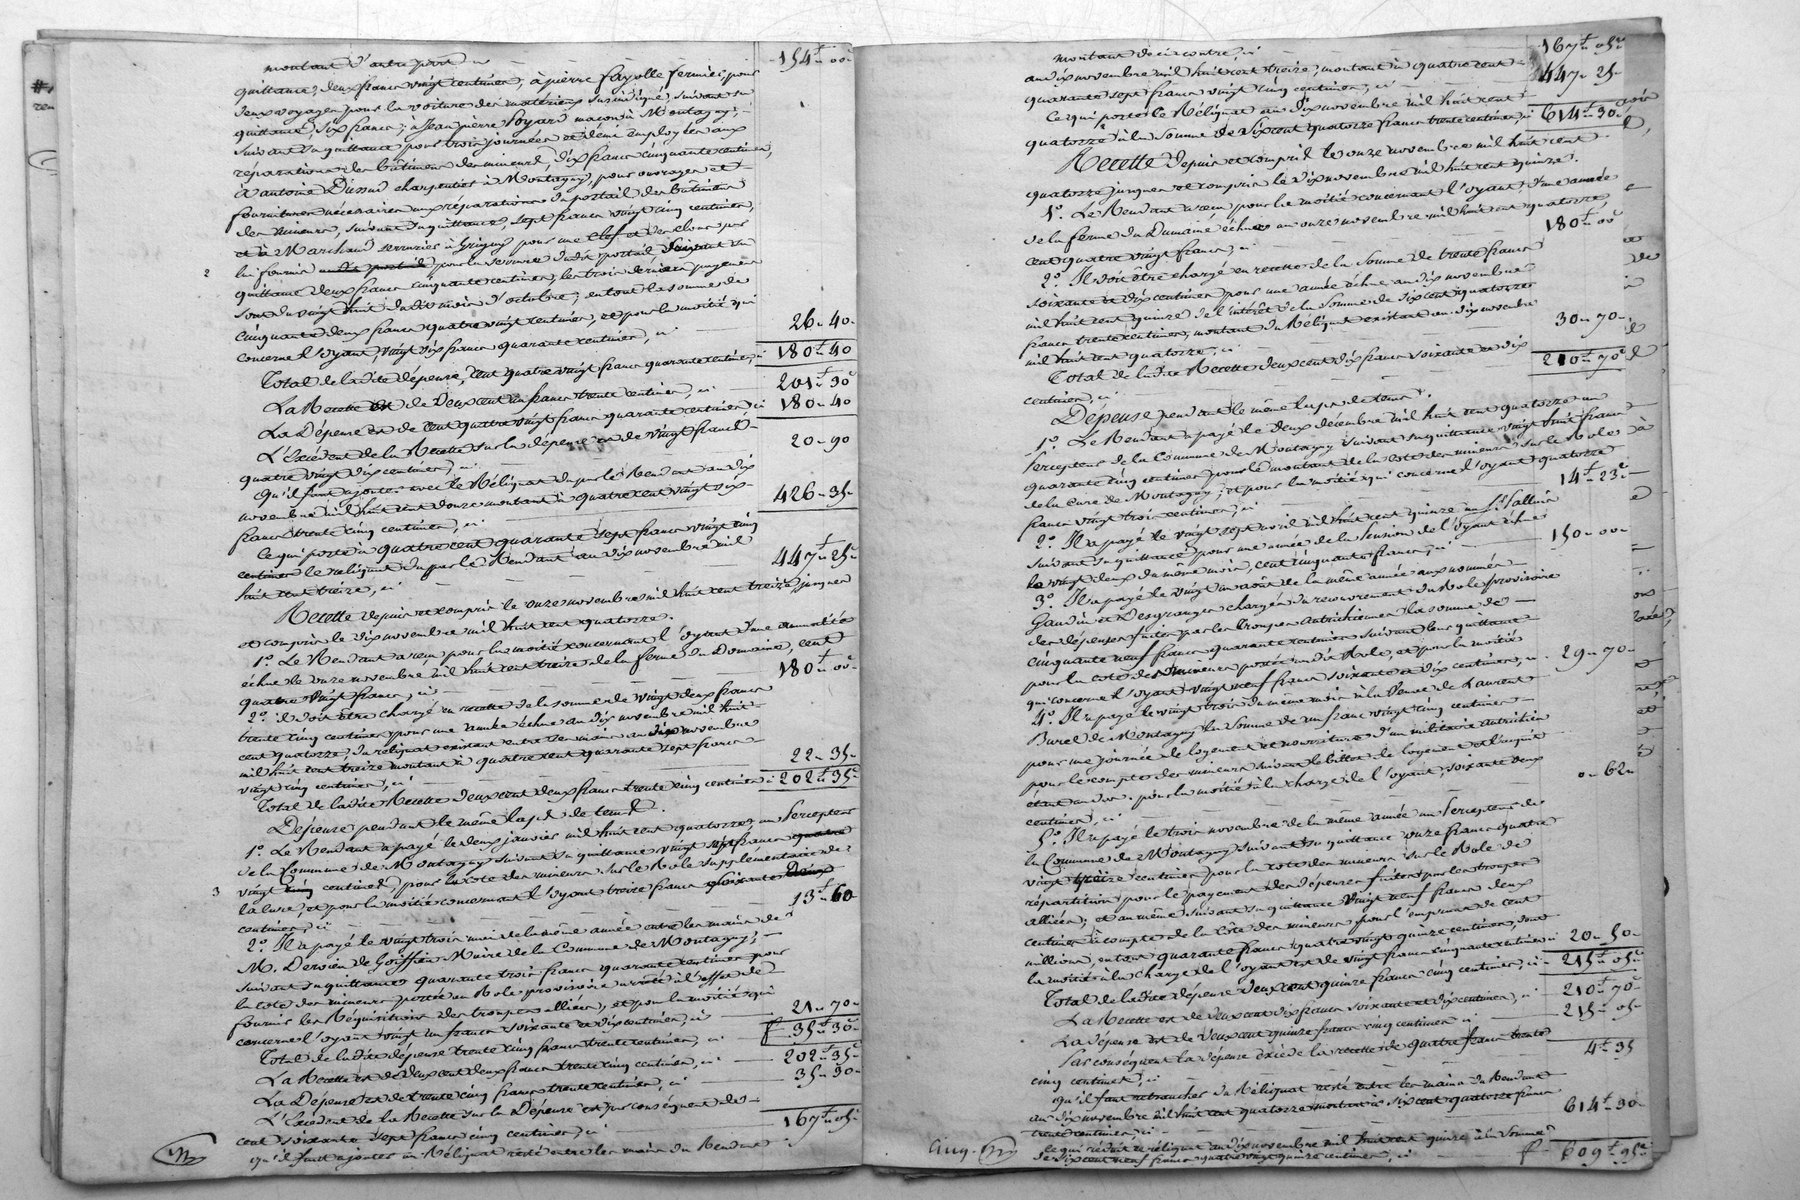 montant d'autre part 154ᶠ 00ᶜ
quittance, deux francs vingt centimes; à pierre fayolle fermier, pour
deux voyages pour la voiture des matériaux susindiqués, suivant sa
quittance, six francs; à Jean pierre Poyard maçon à Montagny,
suivant sa quittance pour trois journées et demi employées aux
réparations des bâtimens des mineurs, dix francs cinquante centimes,
à antoine Dussud charpentier à Montagny, pour ouvrages et
fournitures nécessaires aux réparations du portail des bâtimens
des mineurs, suivant sa quittance, sept francs vingt cinq centimes,
et à Marchand serrurier à Grigny pour une clef et des clous par
lui fournis pour la serrure dudit portail suivant sa
2 quittance deux francs cinquante centimes; les trois derniers payemens
sont du vingt huit dudit mois d'octobre; en tout la somme de
cinquante deux francs quatre vingt centimes, et pour la moitié qui
concerne l'oyant, vingt six francs quarante centimes, ci 26 40
Total de ladite dépense, Cent quatre vingt francs quarante centimes, ci 180ᶠ 40
La Recette est de Deux cent un francs trente centimes, ci 201ᶠ 30ᶜ
La Dépense est de Cent quatre vingt francs quarante centimes, ci 180 40
L'Excédent de la Recette sur la dépense est de vingt francs
quatre vingt dix centimes, ci 20 90
qu'il faut ajouter avec le Réliquat du par le Rendant au dix
novembre mil huit cent douze montant à quatre cent vingt six
francs trente cinq centimes, ci 426 35
Ce qui porte à quatre cent quarante sept francs vingt cinq
centimes le reliquat du par le Rendant au dix novembre mil
huit cent treize, ci 447ᶠ 25ᶜ
Recette depuis et compris le onze novembre mil huit cent treize jusques
et compris le dix novembre mil huit cent quatorze.
1º. Le Rendant a reçu pour la moitié concernant l'oyant d'une année
échue le onze novembre mil huit cent treize de la ferme du Domaine, cent
quatre vingt francs, ci 180ᶠ 00ᶜ
2º. il doit être chargé en recette de la somme de vingt deux francs
trente cinq centimes pour une année échue au dix novembre mil huit
cent quatorze, du reliquat existant entre ses mains au dix novembre
mil huit cent treize montant à quatre cent quarante sept francs
vingt cinq centimes, ci 22 35
Total de ladite Recette deux cent deux francs trente cinq centimes ci 202ᶠ 35ᶜ
Dépense pendant le même laps de tems.
1º. Le Rendant a payé le deux janvier mil huit cent quatorze, au Percepteur
de la Commune de Montagny suivant sa quittance vingt sept francs quatre
vingt cinq centimes, pour la cote des mineurs sur le Role supplémentaire de
3 la cure, et pour la moitié concernant l'oyant treize francs soixante
centimes, ci 13ᶠ 60
2º. Il a payé le vingt trois mai de la même année entre les mains de
M. Dervieu de Goiffieu Maire de la Commune de Montagny,
suivant sa quittance quarante trois francs quarante centimes pour
la cote des mineurs portée au Role provisoire arrêté à l'effet de
fournir les Réquisitions des troupes alliées, et pour la moitié qui
concerne l'oyant vingt un francs soixante et dix centimes, ci 21 70
Total de ladite dépense trente cinq francs trente centimes, ci ƒ 35ᶠ 30ᶜ
La Recette est de deux cent deux francs trente cinq centimes, ci 202ᶠ 35ᶜ
La Dépense est de trente cinq francs trente centimes, ci 35 30
L'Excédent de la Recette sur la Dépense est par conséquent de
cent soixante sept francs cinq centimes, ci 167ᶠ 05ᶜ
qu'il faut ajouter au Réliquat resté entre les mains du Rendant
montant de ci contre, ci 167ᶠ 05ᶜ
au dix novembre mil huit cent treize, montant à quatre cent
quarante sept francs vingt cinq centimes, ci 447 25
Ce qui porte le Réliquat au dix novembre mil huit cent
quatorze à la somme de six cent quatorze francs trente centimes, ci 614 30
Recette depuis et compris le onze novembre mil huit cent
quatorze jusques et compris le dix novembre mil huit cent quinze.
1º. Le Rendant a reçu pour la moitié concernant l'oyant, d'une année
de la ferme du Domaine échue au onze novembre mil huit cent quatorze,
cent quatre vingt francs, ci 180ᶠ 00ᶜ
2º. Il doit être chargé en recette de la somme de trente francs
soixante et dix centimes pour une année échue au dix novembre
mil huit cent quinze de l'intérêt de la somme de six cent quatorze
francs trente centimes, montant du Réliquat existant au dix novembre
mil huit cent quatorze, ci 30 70
Total de ladite Recette deux cent dix francs soixante et dix
centimes, ci 210ᶠ 70ᶜ
Dépense pendant le même laps de tems.
1º. Le Rendant a payé le deux décembre mil huit cent quatorze au
Percepteur de la Commune de Montagny suivant sa quittance vingt huit francs
quarante cinq centimes pour le montant de la cote des mineurs sur le Role
de la cure de Montagny; et pour la moitié qui concerne l'oyant quatorze
francs vingt trois centimes, ci 14ᶠ 23ᶜ
2º. Il a payé le vingt sept avril mil huit cent quinze au Sʳ
suivant sa quittance pour une année de la Pension de l'oyant échue
le vingt deux du même mois, cent cinquante francs, ci 150 00
3º. Il a payé le vingt un août de la même année aux nommés
Gaudin et Desgranges chargés du recouvrement du Role provisoire
des dépenses faites par les troupes autrichiennes la somme de
cinquante neuf francs quarante centimes suivant leur quittance
pour la cote des mineurs portée audit Role, et pour la moitié
qui concerne l'oyant vingt neuf francs soixante et dix centimes, ci 29 70
4º. Il a payé le vingt trois du même mois à la Veuve de Laurent
Burel de Montagny la somme de un franc vingt cinq centimes
pour une journée de logement et nourriture d'un militaire autrichien
pour le compte des mineurs suivant le billet de logement et l'acquit
étant au dos. pour la moitié à la charge de l'oyant, soixante deux
centimes, ci 0 62
5º. Il a payé le trois novembre de la même année au Percepteur de
la Commune de Montagny suivant sa quittance onze francs quatre
vingt treize centimes pour la cote des mineurs sur le Role de
répartition pour le payement des dépenses faites par les troupes
alliées; et au même suivant sa quittance vingt neuf francs deux
centimes à compte de la cote des mineurs pour l'emprunt de cent
millions, en tout quarante francs quatre vingt quinze centimes, dont
la moitié à la charge de l'oyant est de vingt francs cinquante centimes ci 20 50
Total de ladite dépense deux cent quinze francs cinq centimes, ci 215ᶠ 05ᶜ
La Recette est de deux cent dix francs soixante et dix centimes, ci 210ᶠ 70ᶜ
La dépense est de deux cent quinze francs cinq centimes ci 215 05
Par conséquent la dépense excède la recette de quatre francs trente
cinq centimes, ci 4ᶠ 35
qu'il faut retrancher du Réliquat resté entre les mains du Rendant
au dix novembre mil huit cent quatorze montant à six cent quatorze francs
trente centimes, ci 614ᶠ 30
Ce qui réduit le réliquat au dix novembre mil huit cent quinze à la somme
de six cent neuf francs quatre vingt quinze centimes, ci ƒ 609ᶠ 95ᶜ
Cinq.